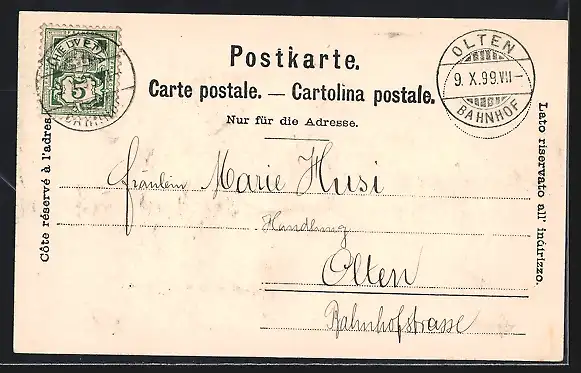 HELVETIA
5
Postkarte.
Carte postale. — Cartolina postale.
Nur für die Adresse.
OLTEN
9. X. 99. VII –
BAHNHOF
Côte réservé à l'adres
Lato riservato all' indirizzo.
Fräulein Marie Husi
Handlung
Olten
Bahnhofstrasse